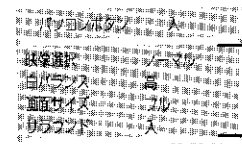 パソコンボタン 入
映像選択 ノーマル
白バランス 高
画面サイズ フル
サラウンド 入